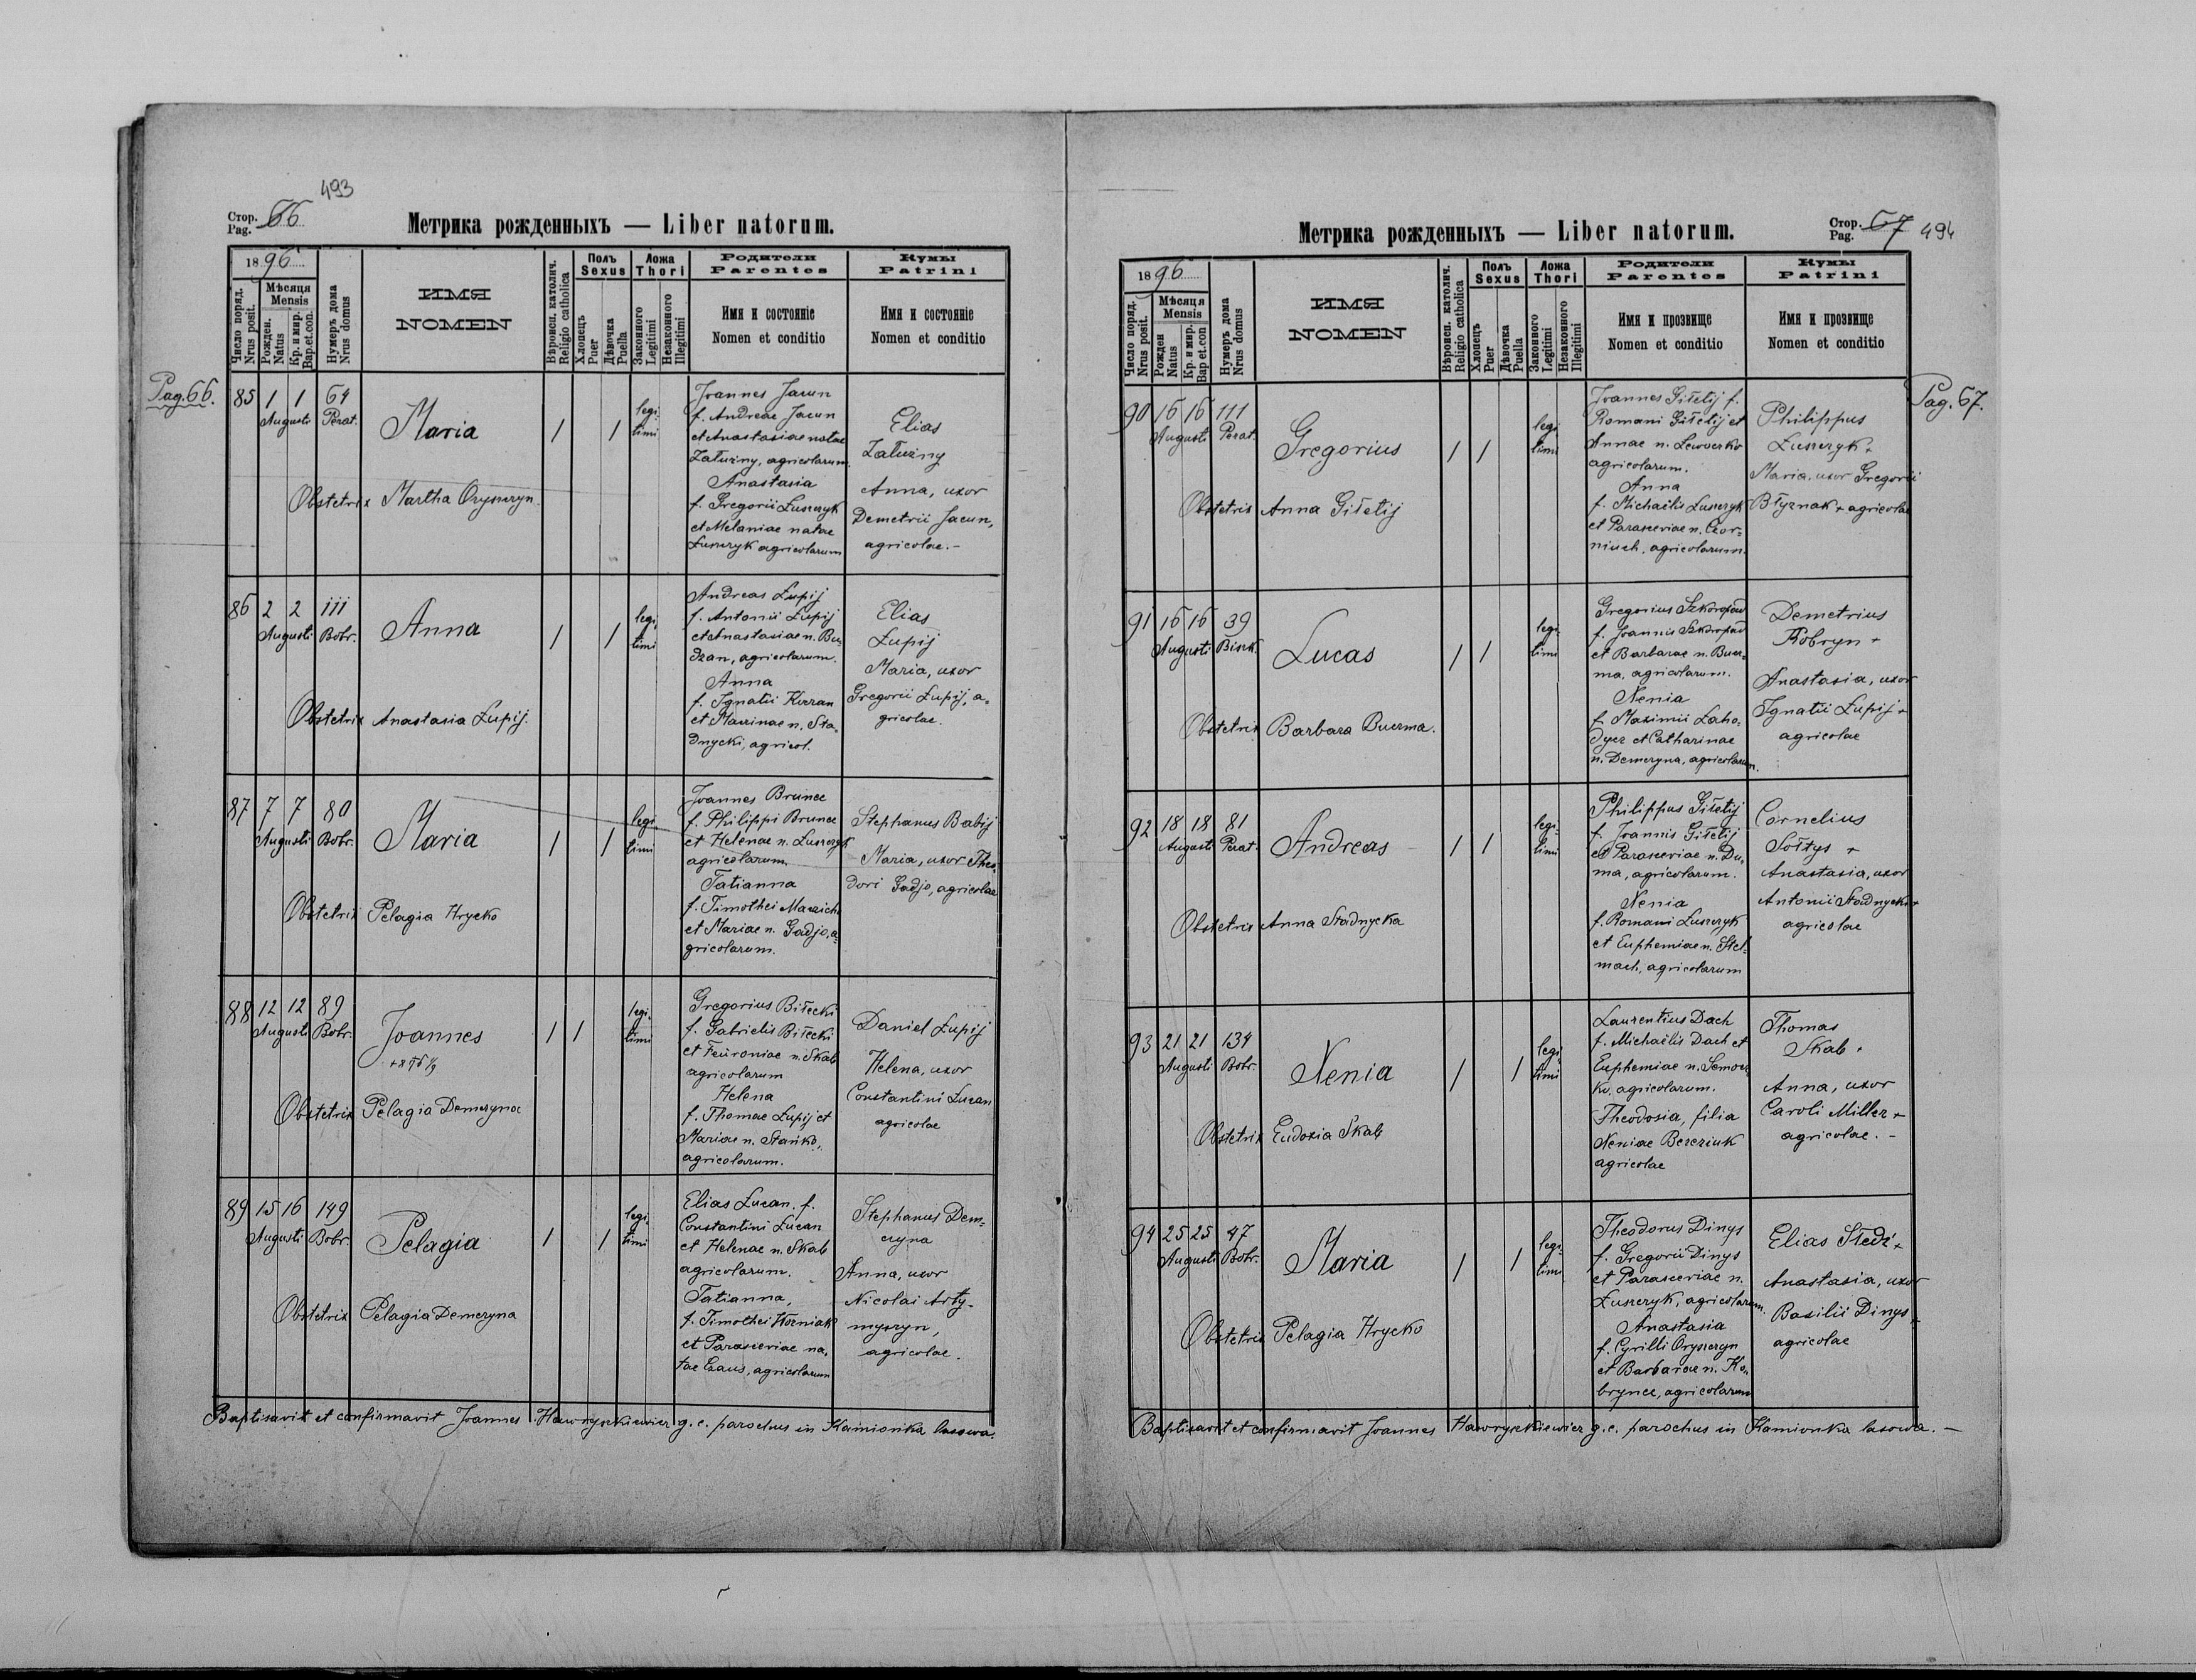 493
Стор. 66
Pag.
Метрика рожденныхъ — Liber natorum.
1896
Число поряд. Nrus posit.
Мѣсяця Mensis
Рожден. Natus
Кр. и мир. Bap.et.con.
Нумеръ дома Nrus domus
ИМЯ
NOMEN
Вѣроисп. католич. Religio catholica
Полъ Sexus
Хлопецъ Puer
Дѣвочка Puella
Ложа Thori
Законного Legitimi
Незаконного Illegitimi
Родители
Parentes
Имя и состояніе
Nomen et conditio
Кумы
Patrini
Имя и состояніе
Nomen et conditio
Pag. 66.
85 1 1 64
Augusti Perat.
Maria
1 1
legi-
timi
Joannes Jacun
f. Andreae Jacun
et Anastasiae natae
Załużny, agricolarum.
Anastasia
f. Gregorii Łuszczyk
et Melaniae natae
Łuszczyk agricolarum
Elias
Załużny
Anna, uxor
Demetrii Jacun,
agricolae.-
Obstetrix Martha Oryszczyn
86 2 2 111
Augusti Bobr.
Anna
1 1
legi-
timi
Andreas Łupij
f. Antonii Łupij
et Anastasiae n. Bu-
dzan, agricolarum.
Anna
f. Ignatii Koczan
et Marinae n. Sta-
dnycki, agricol.
Elias
Łupij
Maria, uxor
Gregorii Łupij, a-
gricolae.
Obstetrix Anastasia Łupij.
87 7 7 80
Augusti Bobr.
Maria
1 1
legi-
timi
Joannes Brunec
f. Philippi Brunec
et Helenae n. Łuszczyk
agricolarum.
Tatianna
f. Timothei
et Mariae n. Gadjo, a-
gricolarum.
Stephanus Babij
Maria, uxor Theo-
dori Gadjo, agricolae
Obstetrix Pelagia Hrycko
88 12 12 89
Augusti Bobr.
Joannes
1 1
legi-
timi
Gregorius Biłecki
f. Gabrielis Biłecki
et Feuroniae n. Skab
agricolarum
Helena
f. Thomae Łupij et
Mariae n. Stańko,
agricolarum.
Daniel Łupij
Helena, uxor
Constantini Łucan
agricolae
Obstetrix Pelagia Demczyna
89 15 16 149
Augusti Bobr.
Pelagia
1 1
legi-
timi
Elias Łucan. f.
Constantini Łucan
et Helenae n. Skab
agricolarum.
Tatianna,
f. Timothei Woźniak
et Parasceviae na-
tae Czaus, agricolarum
Stephanus Dem-
czyna
Anna, uxor
Nicolai Arty-
myszyn,
agricolae.
Obstetrix Pelagia Demczyna
Baptisavit et confirmavit Joannes Hawryszkiewicz g. c. parochus in Kamionka lasowa.
Метрика рожденныхъ — Liber natorum.
Стор. 67
Pag.
494
1896
Число поряд. Nrus posit.
Мѣсяця Mensis
Рожден Natus
Кр. и мир. Bap et.con
Нумеръ дома Nrus domus
ИМЯ
NOMEN
Вѣроисп. католич. Religio catholica
Полъ Sexus
Хлопецъ Puer
Дѣвочка Puella
Ложа Thori
Законного Legitimi
Незаконного Illegitimi
Родители
Parentes
Имя и прозвище
Nomen et conditio
Кумы
Patrini
Имя и прозвище
Nomen et conditio
Pag. 67.
90 16 16 111
Augusti Perat.
Gregorius
1 1
legi-
timi
Joannes Giłetij f.
Romani Giłetij et
Annae n. Lewoczko
agricolarum.
Anna
f. Michaëlis Łuszczyk
et Parasceviae n. Czor-
niuch, agricolarum.
Philippus
Łuszczyk +
Maria, uxor Gregorii
Błyznak + agricolae
Obstetrix Anna Giłetij
91 16 16 39
Augusti
Lucas
1 1
legi-
timi
Gregorius Szkoropad
f. Joannis Szkoropad
et Barbarae n. Bucz-
ma, agricolarum.
Xenia
f. Maximii Laho-
dycz et Catharinae
n. Demczyna, agricolarum.
Demetrius
Kobryn +
Anastasia, uxor
Ignatii Łupij +
agricolae
Obstetrix Barbara Buczma.
92 18 18 81
Augusti Perat.
Andreas
1 1
legi-
timi
Philippus Giłetij
f. Joannis Giłetij
et Parasceviae n. Du-
ma, agricolarum.
Xenia
f. Romani Łuszczyk
et Euphemiae n. Stel-
mach, agricolarum
Cornelius
Sołtys +
Anastasia, uxor
Antonii Stadnycki +
agricolae
Obstetrix Anna Stadnycka
93 21 21 134
Augusti Bobr.
Xenia
1 1
legi-
timi
Laurentius Dach
f. Michaëlis Dach et
Euphemiae n. Semocz-
ko, agricolarum.
Theodosia, filia
Xeniae Bereziuk
agricolae
Thomas
Skab +
Anna, uxor
Caroli Miller +
agricolae. -
Obstetrix Eudoxia Skab
94 25 25 47
Augusti Bobr.
Maria
1 1
legi-
timi
Theodorus Dinys
f. Gregorii Dinys
et Parasceviae n.
Łuszczyk, agricolarum.
Anastasia
f. Cyrilli Oryszczyn
et Barbarae n. Ko-
brynec, agricolarum
Elias Śledź +
Anastasia, uxor
Basilii Dinys +
agricolae
Obstetrix Pelagia Hrycko
Baptisavit et confirmavit Joannes Hawryszkiewicz g. c. parochus in Kamionka lasowa. —